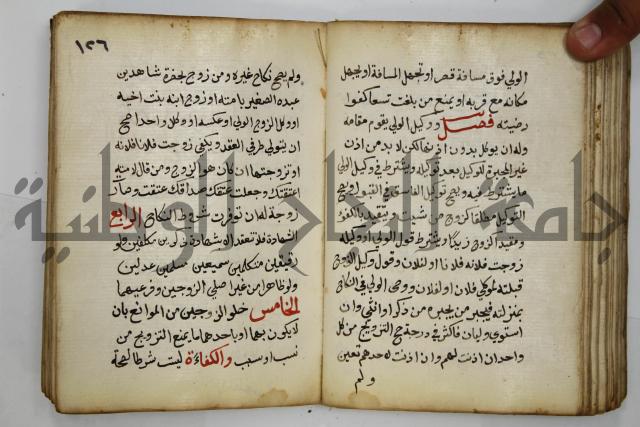 الولي فوق مسافة قصر او تجهل المسافة او يجهل
مكانه مع قربه او يمنع من بلغت تسعا كفوا
رضيته فصل ووكيل الولي يقوم مقامه
وله ان يوكل بدون اذنها لكن لا بد من اذن
غير المجبرة للوكيل بعد توكيله ويشترط في وكيل الولي
ما يشترط فيه ويصح توكيل الفاسق في القبول ويصح
التوكيل مطلقا كزوج من شئت ويتقيد بالكفو
ومقيدا كزوج زيدا ويشترط قول الولي او وكيله
زوجت فلانة فلانا او لفلان وقول وكيل الزوج
قبلته لموكلي فلان او لفلان ووصي الولي في النكاح
بمنزلته فيجبر من يجبره من ذكر او انثى وان
استوى وليان فاكثر في درجة صح التزويج من كل
واحد ان اذنت لهم وان اذنت لاحدهم تعين
ولم
١٢٦
ولم يصح نكاح غيره ومن زوج بحضرة شاهدين
عبده الصغير بامته او زوج ابنه بنت اخيه
او وكل الزوج الولي او عكسه او وكلا واحدا صح
ان يتولى طرفي العقد ويكفي زوجت فلانا فلانة
او تزوجتها ان كان هو الزوج ومن قال لامته
اعتقتك وجعلت عتقك صداقك عتقت وصارت
زوجة له ان توفرت شروط النكاح الرابع
الشهادة فلا تنعقد الا بشهادة ذكرين مكلفين ولو
رقيقين متكلمين سميعين مسلمين عدلين
ولو ظاهرا من غير اصلي الزوجين وفرعيهما
الخامس خلو الزوجين من الموانع بان
لا يكون بهما او باحدهما ما يمنع التزويج من
نسب او سبب والكفاءة ليست شرطا لصحة
جامعة النجاح الوطنية